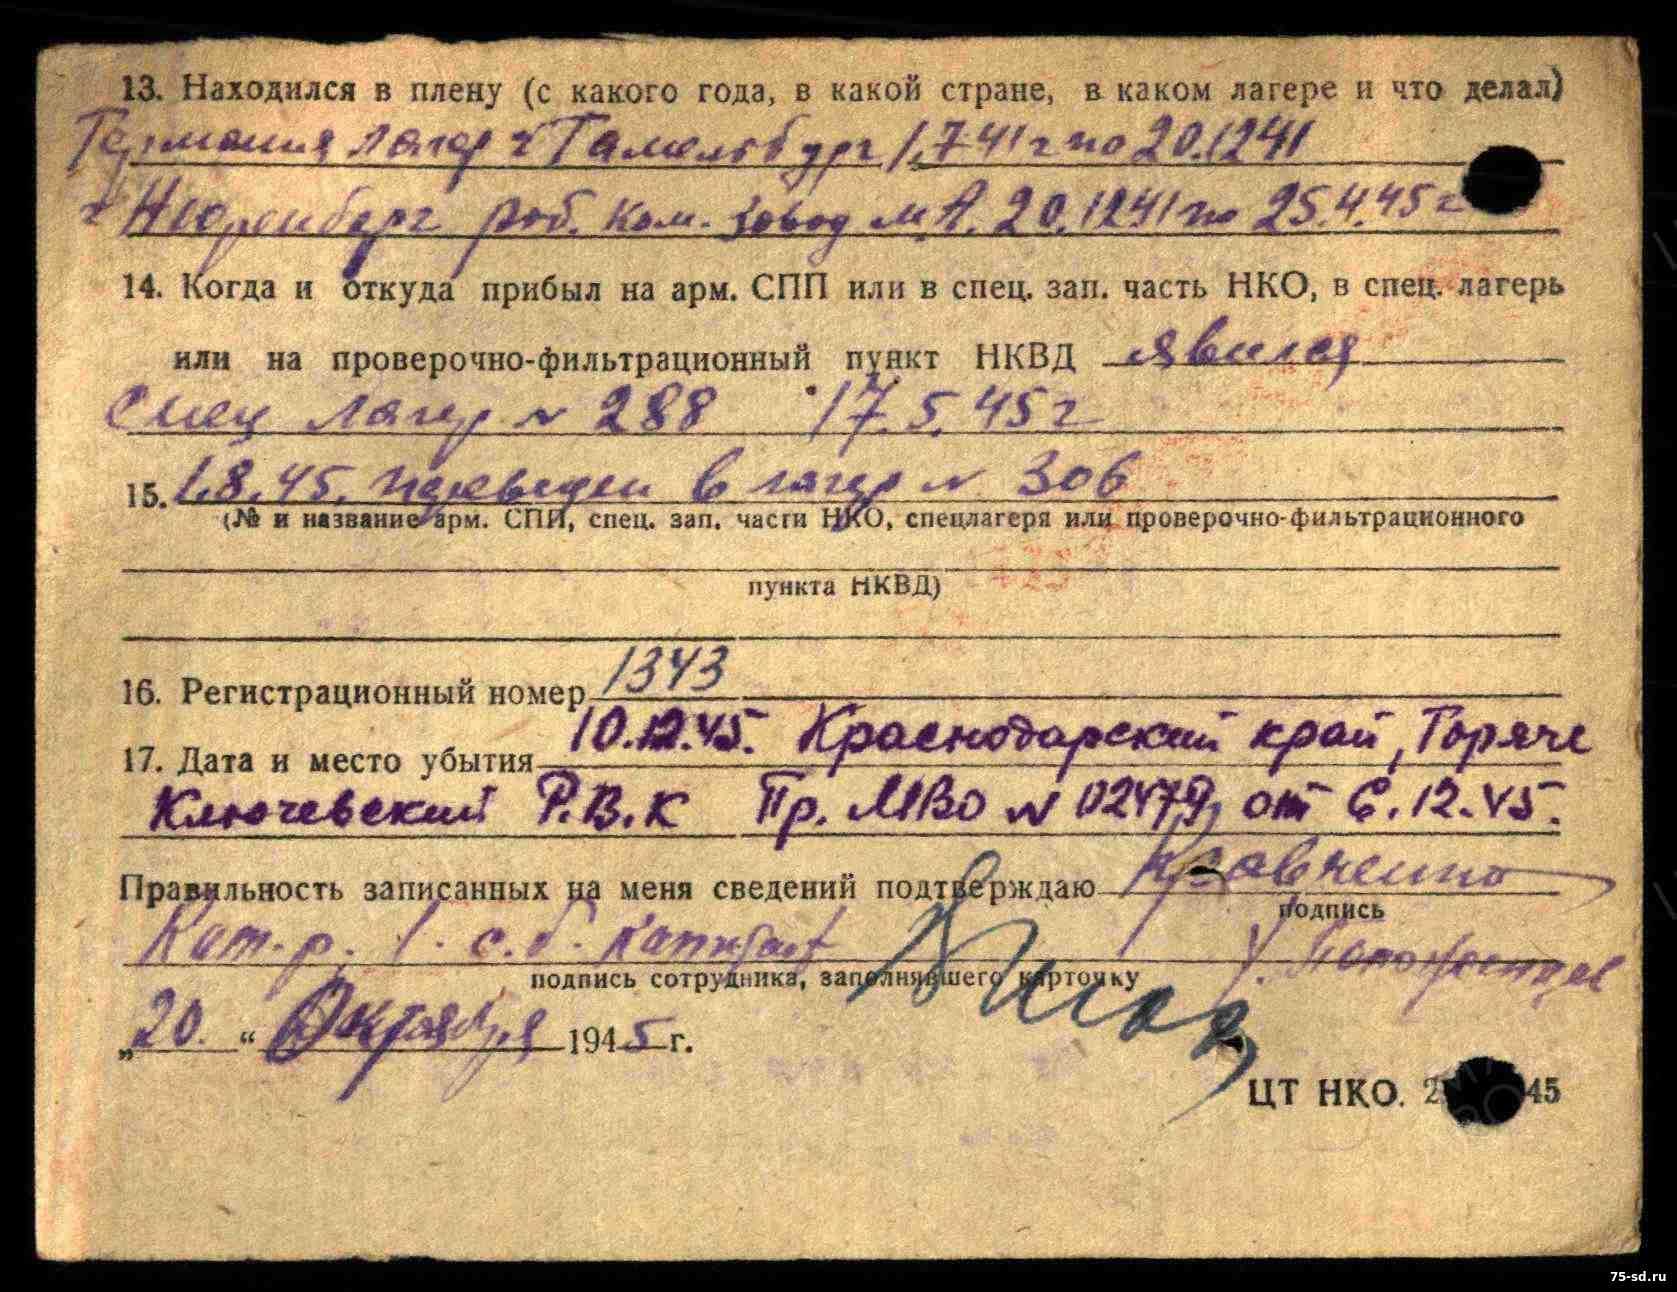 13. Находился в плену (с какого года, в какой стране, в каком лагере и что делал)
Германия лагер г Гамельбург 1.7 41 г по 20.12 41
г Нюренберг раб. ком. завод М.А. 20.12 41 г по 25.4.45 г
14. Когда и откуда прибыл на арм. СПП или в спец. зап. часть НКО, в спец. лагерь
или на проверочно-фильтрационный пункт НКВД явился
спец лагер N 288 17.5.45 г
15. 1.8.45. переведен в лагер N 306
(№ и название арм. СПП, спец. зап. части НКО, спецлагеря или проверочно-фильтрационного
пункта НКВД)
16. Регистрационный номер 1343
17. Дата и место убытия 10.12.45. Краснодарский край, Горяче
Ключевский Р.В.К Пр. МВО N 02479 от 6.12.45.
Правильность записанных на меня сведений подтверждаю Кравченко
подпись
Ком. р. 1 с.б. капитан
подпись сотрудника, заполнявшего карточку
„20. “ Октября 1945 г.
ЦТ НКО. 2 45
75-sd.ru